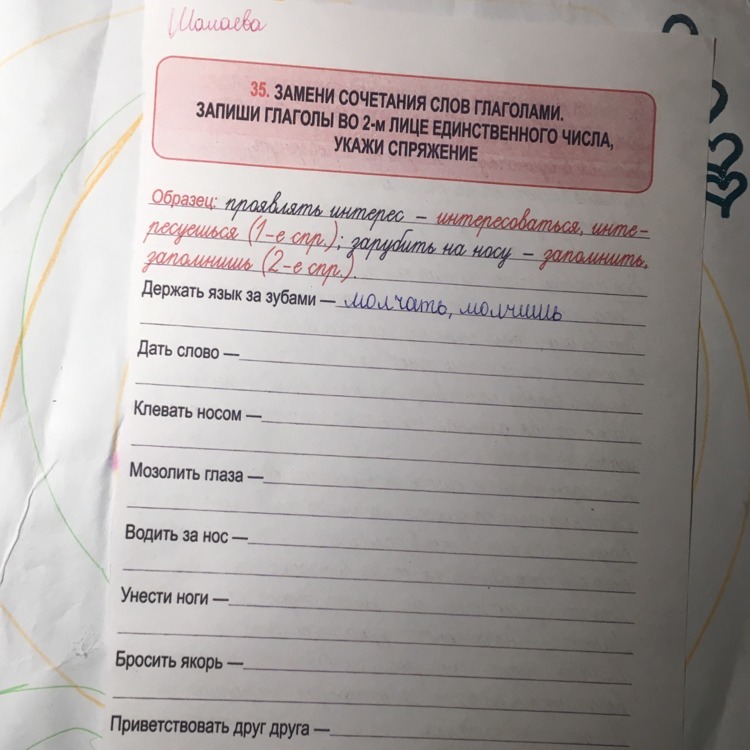 Шамаева
35. ЗАМЕНИ СОЧЕТАНИЯ СЛОВ ГЛАГОЛАМИ.
ЗАПИШИ ГЛАГОЛЫ ВО 2-м ЛИЦЕ ЕДИНСТВЕННОГО ЧИСЛА,
УКАЖИ СПРЯЖЕНИЕ
Образец: проявлять интерес – интересоваться, инте-
ресуешься (1-е спр.); зарубить на носу – запомнить,
запомнишь (2-е спр.).
Держать язык за зубами — молчать, молчишь
Дать слово —
Клевать носом —
Мозолить глаза —
Водить за нос —
Унести ноги —
Бросить якорь —
Приветствовать друг друга —